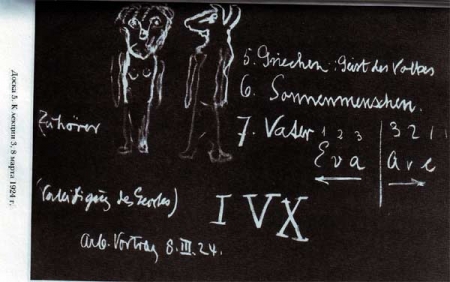 Доска 5. К лекции 3, 8 марта 1924 г.
5. Griechen: Geist des Volkes
6. Sonnenmenschen.
Zuhörer
7. Vater
1 2 3 | 3 2 1
Eva | ave
des
I V X
Arb. Vortrag 8. III. 24.